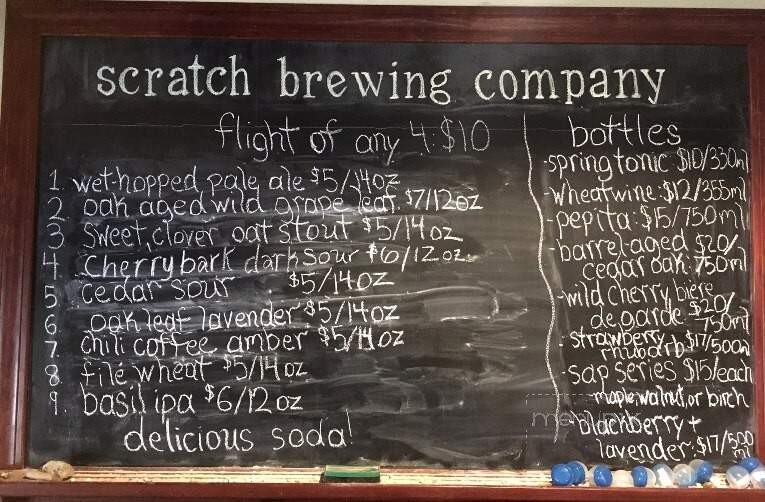 scratch brewing company
flight of any 4: $10
1. wet-hopped pale ale $5/14oz
2. oak aged wild grape leaf $7/12oz
3. sweet clover oat stout $5/14 oz
4. cherry bark dark sour $6/12 oz.
5. cedar sour $5/14oz
6. oak leaf lavender $5/14oz
7. chili coffee amber $5/14 oz
8. file wheat $5/14 oz
9. basil ipa $6/12 oz
delicious soda!
bottles
-spring tonic $10/330ml
-wheatwine: $12/355ml
-pepita: $15/750ml
-barrel-aged $20/
cedar oak: 750ml
-wild cherry biere
de garde $20/
750ml
-strawberry $17/500ml
rhubarb
-sap series $15/each
maple, walnut, or birch
-blackberry +
lavender: $17/500
ml